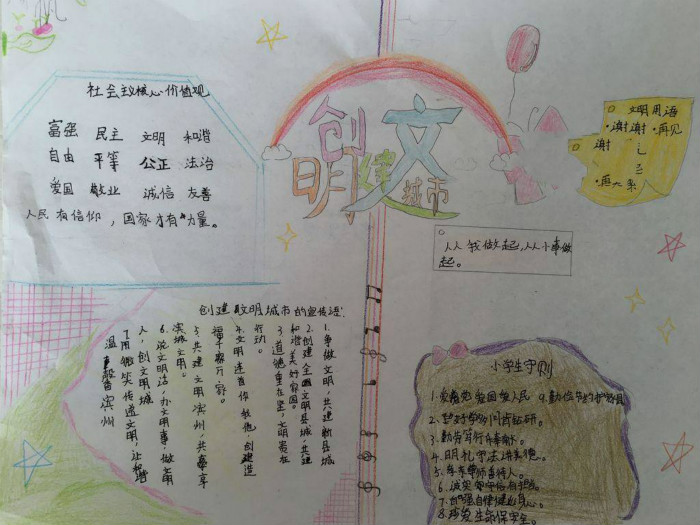 社会主义核心价值观
富强 民主 文明 和谐
自由 平等 公正 法治
爱国 敬业 诚信 友善
人民有信仰，国家才有“力量。
创建文明城市
文明用语
·谢谢·再见
谢
从我做起,从小事做
起。
创建文明城市的宣传语:
1.争做文明,共建新县城
2.创建全国文明县城,共建
和谐美好家园。
3.道德重在
行动。
4.文明连着你我他,创建造
福千家万家。
5.共建文明滨州,共享
滨城文明。
6.说文明话,办文明事,做文明
人,创文明城
7.用微笑传递文明,让
温 滨州
小学生守则
1.爱党爱国爱人民
9.勤俭节约护家园
2.好学多问肯钻研。
3.勤劳笃行乐奉献。
4.明礼守法讲美德。
5.孝亲尊师善待人。
6.诚实守信有担当。
7.自强自律健身心。
8.珍爱生命保安全。